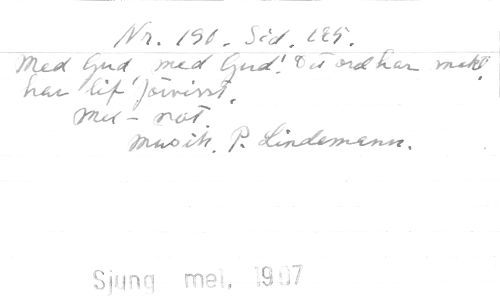 Nr. 190. Sid. 125.
Med Gud, med Gud! Det ord har makt,
har lif förvisst.
Mel - not.
Musik. P. Lindemann.
Sjung mel. 1907